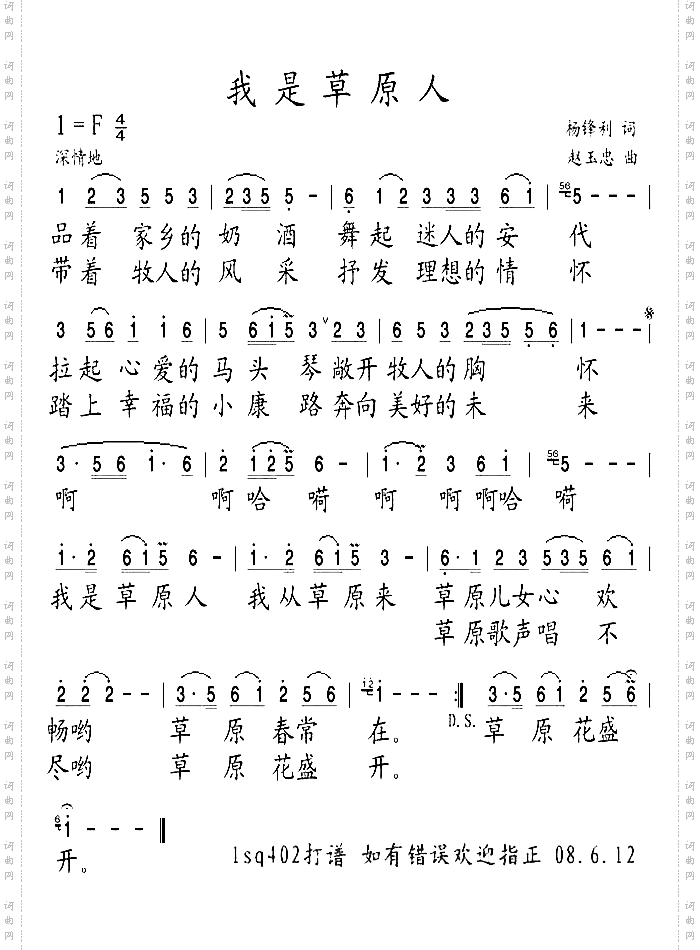 我是草原人
1=F 4/4
杨锋利 词
深情地
赵玉忠 曲
1 2 3 5 5 3 | 2 3 5 5 - | 6 1 2 3 3 3 6 1 | 56 5 - - - |
品着 家乡的 奶 酒 舞起 迷人的 安 代
带着 牧人的 风 采 抒发 理想的 情 怀
3 5 6 1 1 6 | 5 6 1 5 3 ∨ 2 3 | 6 5 3 2 3 5 5 6 | 1 - - - |
拉起 心爱的 马头 琴 敞开 牧人的 胸 怀
踏上 幸福的 小康 路 奔向 美好的 未 来
3· 5 6 1· 6 | 2 1 2 5 6 - | 1· 2 3 6 1 | 56 5 - - |
啊 啊哈 嗬 啊 啊 啊哈 嗬
1· 2 6 1 5 6 - | 1· 2 6 1 5 3 - | 6· 1 2 3 5 3 5 6 1 |
我是草原人 我从草原来 草原儿女心 欢
草原歌声唱 不
2 2 2 - - | 3· 5 6 1 2 5 6 | 1 2 1 - - - :| 3· 5 6 1 2 5 6 |
畅哟 草 原 春常 在。 D.S. 草 原 花盛
尽哟 草 原 花盛 开。
6 1 - - - ‖
开。
lsq402打谱 如有错误欢迎指正 08.6.12
词曲网